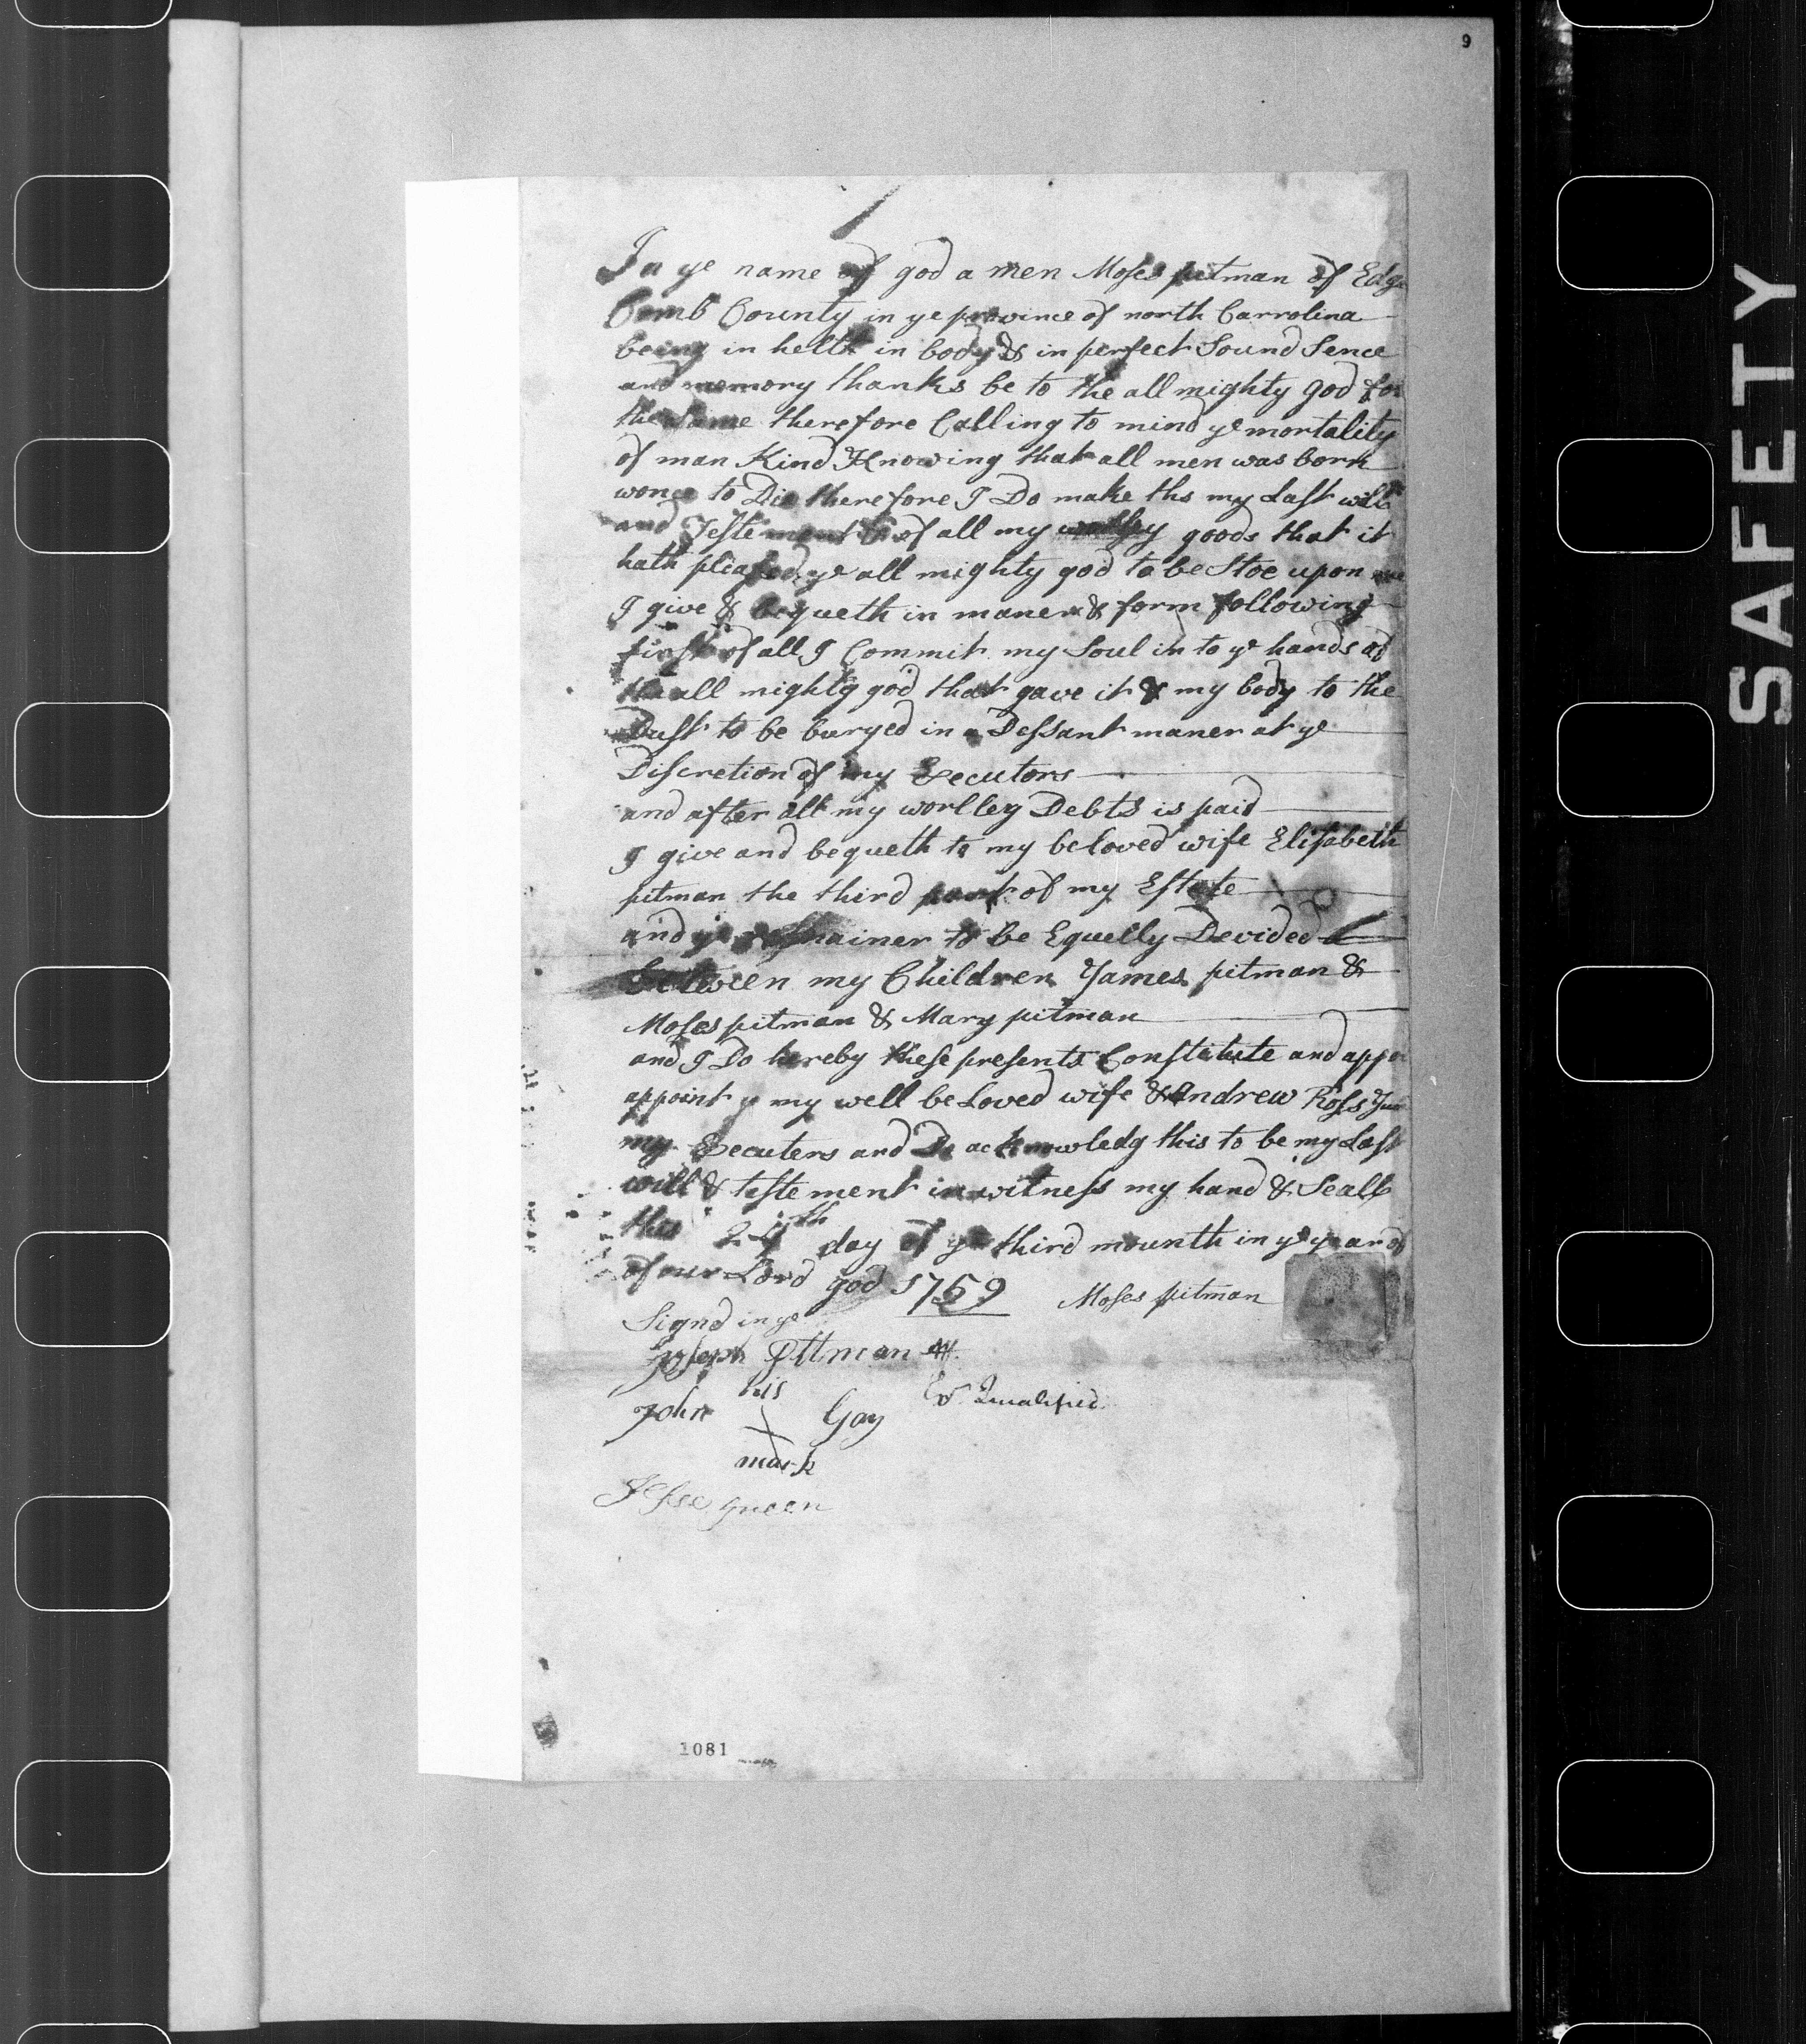 9
In ye name of god a men Moses pitman of Edge
Comb County in ye province of north Carrolina
being in helth in body & in perfect Sound Sence
and memory thanks be to the all mighty god for
the Same therefore Calling to mind ye mortality
of man Kind Knowing that all men was born
wonce to Die therefore I Do make ths my Last will
and Testement & of all my goods that it
hath pleased ye all mighty god to be Stoe upon me
I give & bequeth in maner & form following
first of all I Commit my Soul in to ye hands of
the all mighty god that gave it & my body to the
Dust to be buryed in a Dessant maner at ye
Discretion of my Executors
and after all my worlley Debts is paid
I give and bequeth to my beloved wife Elisabeth
pitman the third part of my Estate
and ye remainer to be Equelly Devided
Between my Children James pitman &
Moses pitman & Mary pitman
and I Do hereby these presents Constitute and appoi
appoint my well be Loved wife & Andrew Ross Jun
my Executers and Do acknowledg this to be my Last
will & testement in witness my hand & Seall
this day of ye third mounth in ye year of
of our Lord god 1759 Moses pitman
Signd in ye
Joseph Pttman
John his Gay Exr Qualified
mark
Jesse green
1081
SAFETY